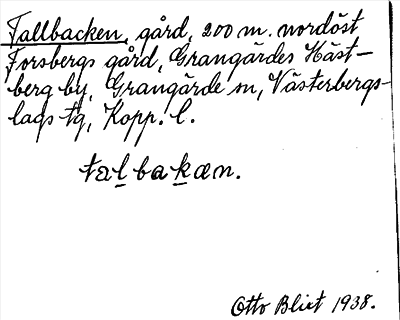 Tallbacken, gård, 200 m. nordöst
Forsbergs gård, Grangärdes Häst-
berg by, Grangärde sn, Västerbergs-
lags tg, Kopp. l.
talbakæn.
Otto Blixt 1938.